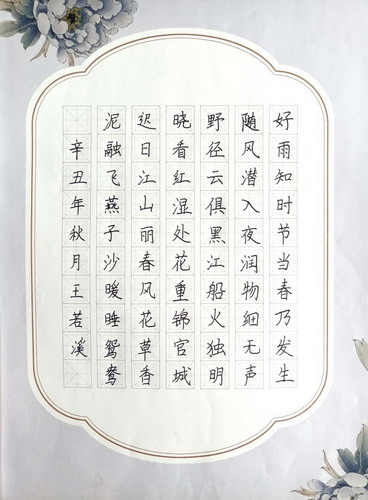 好雨知时节当春乃发生
随风潜入夜润物细无声
野径云俱黑江船火独明
晓看红湿处花重锦官城
迟日江山丽春风花草香
泥融飞燕子沙暖睡鸳鸯
辛丑年秋月王若溪